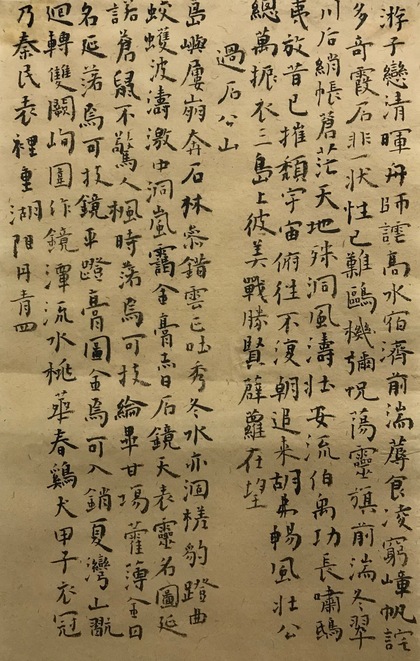 游子戀清暉舟師詫高水宿濟前湍蓐食凌窮嶂帆詫
多奇霞石非一狀性已難鷗機彌悅蕩靈旗前湍冬翠
川后綃帳蒼茫天地殊洞風濤壯安流伯禹功長嘯鴟
夷放昔已摧頹宇宙俯往不復朝追來胡弗暢風壯公
總萬振衣三島上彼美戰勝賢薜蘿在望
過石公山
島嶼屢崩奔石林崇錯雲已吐秀冬水亦洄槎豹蹬曲
蛟蠖波濤激中洞嵐靄金膏青日石鏡天表靈名圖延
諾蒼鼠不驚人楓時落焉可技綸畢甘場藿薄金日
名延落焉可技鏡平蹬膏圖金焉可入銷夏灣山翫
迴轉雙闕峋圖作鏡渾流水桃華春雞犬甲子衣冠
乃秦民衣裡重湖陌丹青四